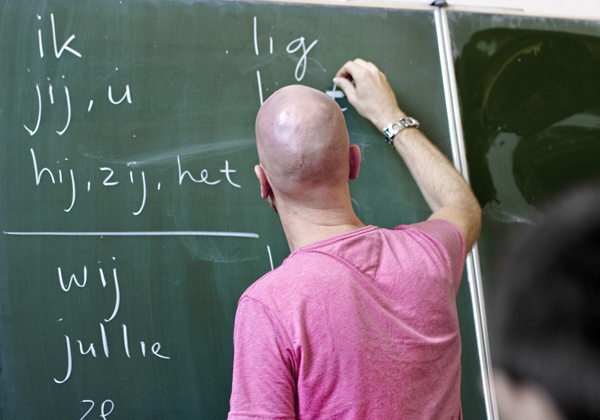 ik lig
jij, u
hij, zij, het
wij
jullie
ze